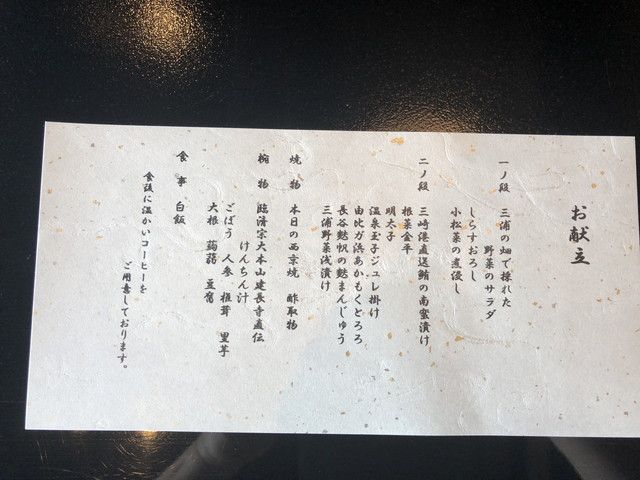 お献立
一ノ段 三浦の畑で採れた
野菜のサラダ
しらすおろし
小松菜の煮浸し
二ノ段 三崎港直送鮪の南蛮漬け
根菜金平
明太子
温泉玉子ジュレ掛け
由比ガ浜あかもくとろろ
長谷麩帆の麩まんじゅう
三浦野菜浅漬け
焼物 本日の西京焼 酢取物
椀物 臨済宗大本山建長寺直伝
けんちん汁
ごぼう 人参 椎茸 里芋
大根 蒟蒻 豆腐
食事 白飯
食後に温かいコーヒーを
ご用意しております。